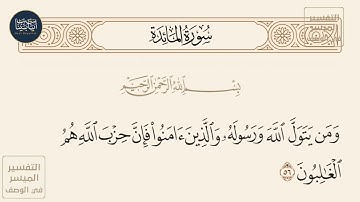 سُورَةُ المَائِدَةِ
التفسير
الميسر
بِسْمِ ٱللَّهِ ٱلرَّحْمَٰنِ ٱلرَّحِيمِ
وَمَن يَتَوَلَّ ٱللَّهَ وَرَسُولَهُۥ وَٱلَّذِينَ ءَامَنُوا۟ فَإِنَّ حِزْبَ ٱللَّهِ هُمُ
ٱلْغَٰلِبُونَ ٥٦
التفسير
الميسر
في الوصف